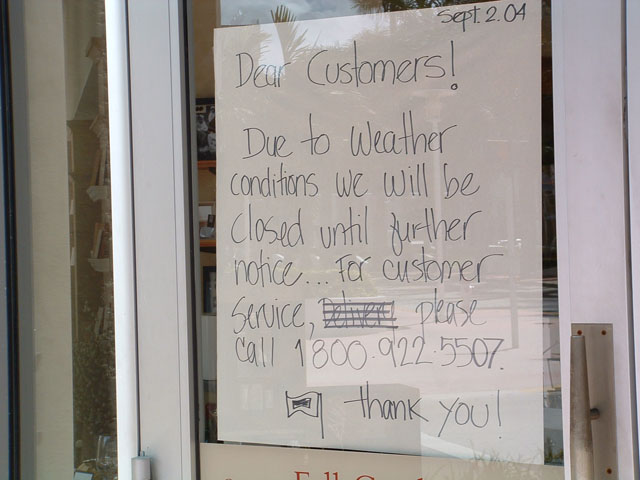 Sept. 2. 04
Dear Customers!
Due to Weather
conditions we will be
closed until further
notice... For customer
Service, Delivery please
call 1 800.922.5507.
thank you!